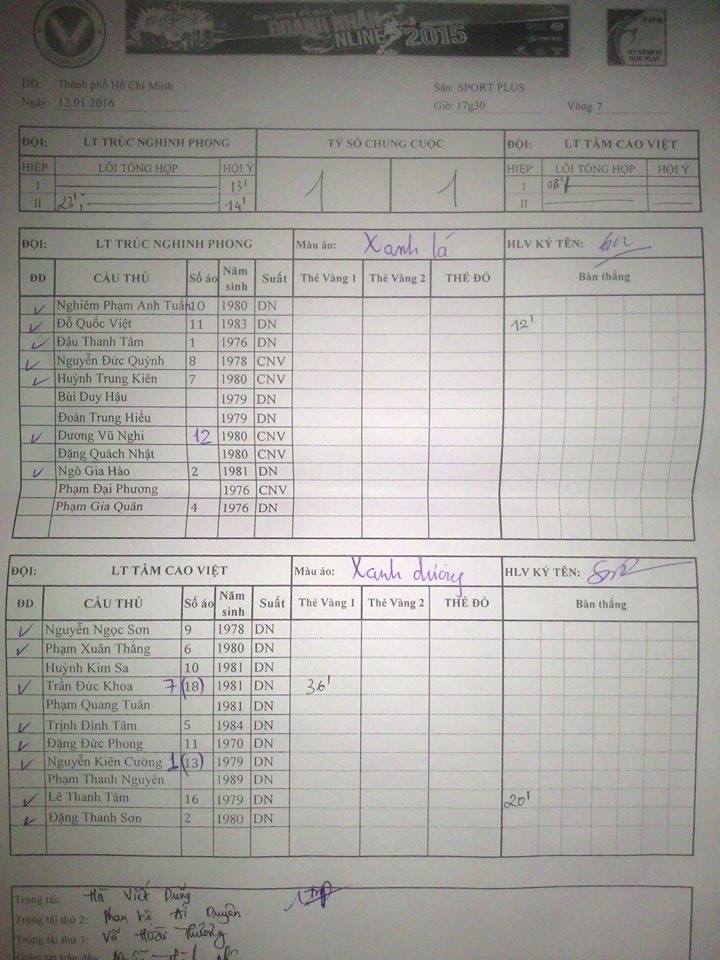 Giải bóng đá mini
DOANH NHÂN
ONLINE 2015
FAIR PLAY
ĐĐ: Thành phố Hồ Chí Minh Sân: SPORT PLUS
Ngày: 12.01.2016 Giờ: 17g30 Vòng 7
ĐỘI: LT TRÚC NGHINH PHONG TỶ SỐ CHUNG CUỘC ĐỘI: LT TẦM CAO VIỆT
HIỆP LỖI TỔNG HỢP HỘI Ý 1 1 HIỆP LỖI TỔNG HỢP HỘI Ý
I 13' I 08'
II 23' 14' II
ĐỘI: LT TRÚC NGHINH PHONG Màu áo: Xanh lá HLV KÝ TÊN:
ĐD CẦU THỦ Số áo Năm sinh Suất Thẻ Vàng 1 Thẻ Vàng 2 THẺ ĐỎ Bàn thắng
Nghiêm Phạm Anh Tuấn 10 1980 DN
Đỗ Quốc Việt 11 1983 DN 12'
Đậu Thanh Tâm 1 1976 DN
Nguyễn Đức Quỳnh 8 1978 CNV
Huỳnh Trung Kiên 7 1980 CNV
Bùi Duy Hậu 1979 DN
Đoàn Trung Hiếu 1979 DN
Dương Vũ Nghi 12 1980 CNV
Đặng Quách Nhật 1980 CNV
Ngô Gia Hào 2 1981 DN
Phạm Đại Phương 1976 CNV
Phạm Gia Quân 4 1976 DN
ĐỘI: LT TẦM CAO VIỆT Màu áo: Xanh dương HLV KÝ TÊN:
ĐD CẦU THỦ Số áo Năm sinh Suất Thẻ Vàng 1 Thẻ Vàng 2 THẺ ĐỎ Bàn thắng
Nguyễn Ngọc Sơn 9 1978 DN
Phạm Xuân Thắng 6 1980 DN
Huỳnh Kim Sa 10 1981 DN
Trần Đức Khoa 7 (18) 1981 DN 36'
Phạm Quang Tuân 1981 DN
Trịnh Đình Tâm 5 1984 DN
Đặng Đức Phong 11 1970 DN
Nguyễn Kiên Cường 1 (13) 1979 DN
Phạm Thanh Nguyên 1989 DN
Lê Thanh Tâm 16 1979 DN 20'
Đặng Thanh Sơn 2 1980 DN
Trọng tài: Hà Việt Dũng
Trọng tài thứ 2: Phan Lê Ái Duyên
Trọng tài thứ 3: Võ Hoài Thương
Giám sát trận đấu: